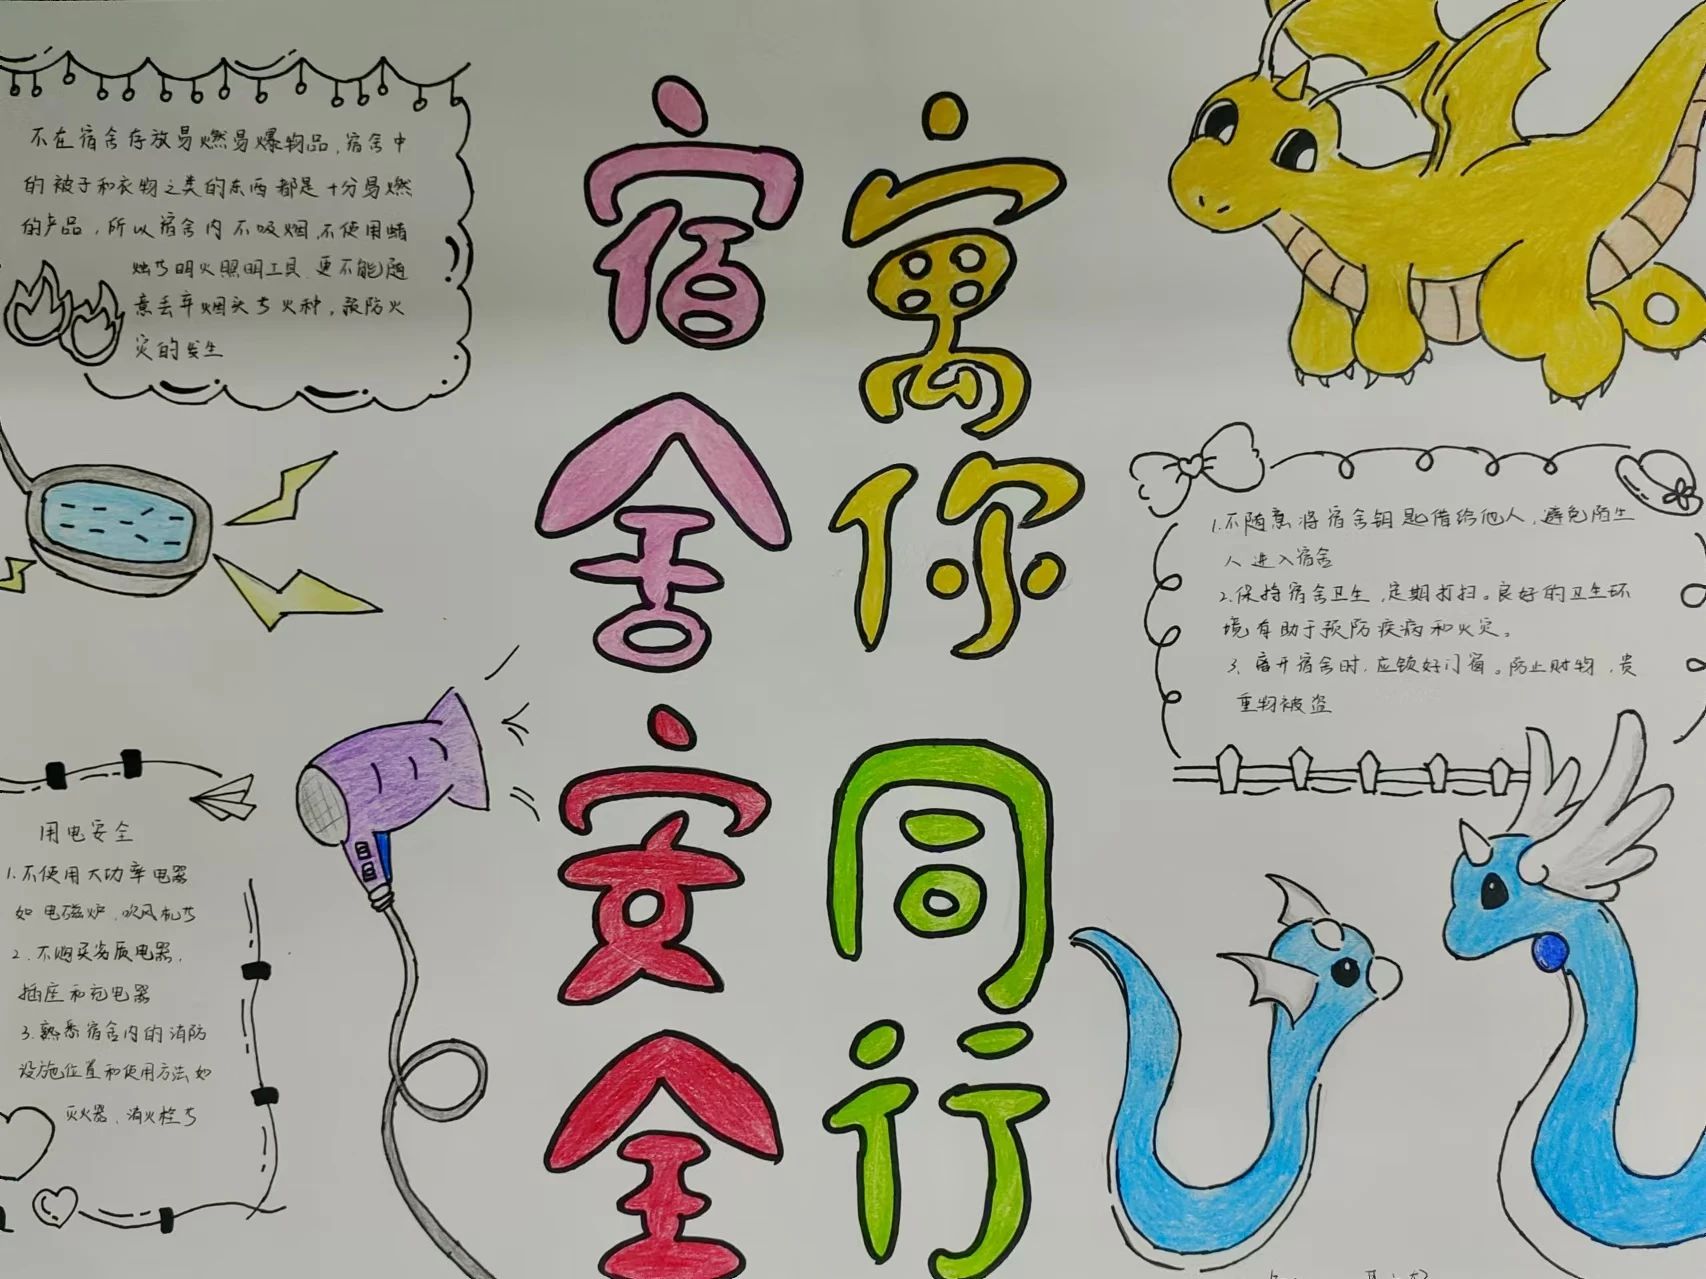 宿舍安全
寓你同行
不在宿舍存放易燃易爆物品，宿舍中
的被子和衣物之类的东西都是十分易燃
的产品，所以宿舍内不吸烟，不使用蜡
烛等明火照明工具，更不能随
意丢弃烟头等火种，预防火
灾的发生
用电安全
1.不使用大功率电器
如电磁炉，吹风机等
2.不购买劣质电器，
插座和充电器
3.熟悉宿舍内的消防
设施位置和使用方法如
灭火器、消火栓等
1.不随意将宿舍钥匙借给他人，避免陌生
人进入宿舍
2.保持宿舍卫生，定期打扫。良好的卫生环
境有助于预防疾病和火灾。
3.离开宿舍时，应锁好门窗。防止财物，贵
重物被盗